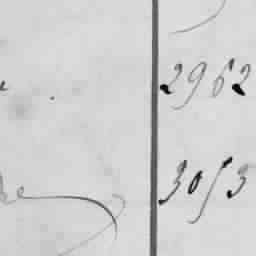 2962
3053